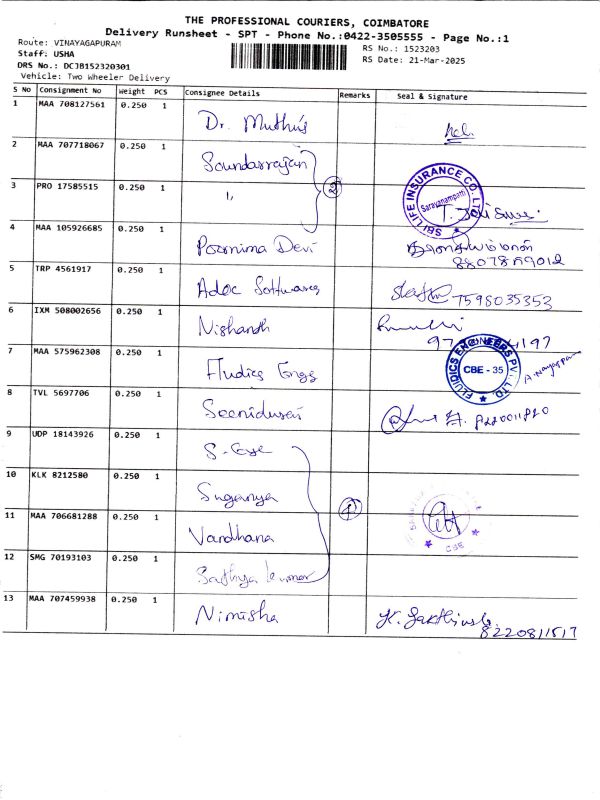 THE PROFESSIONAL COURIERS, COIMBATORE
Delivery Runsheet - SPT - Phone No.:0422-3505555 - Page No.:1
Route: VINAYAGAPURAM
Staff: USHA
DRS No.: DCJB152320301
Vehicle: Two Wheeler Delivery
RS No.: 1523203
RS Date: 21-Mar-2025
S No Consignment No Weight PCS Consignee Details Remarks Seal & Signature
1 MAA 708127561 0.250 1 Dr. Muthu's
2 MAA 707718067 0.250 1 Soundarrajan
3 PRO 17585515 0.250 1 " 2 SBI LIFE INSURANCE CO. LTD. Saravanampatti
4 MAA 105926685 0.250 1 Poornima Devi
5 TRP 4561917 0.250 1 Adoc Softwares 7598035353
6 IXM 508002656 0.250 1 Nishanth
7 MAA 575962308 0.250 1 Fludics Enggs FLUIDICS ENGINEERS PVT. LTD. CBE - 35
8 TVL 5697706 0.250 1 Seenidurai
9 UDP 18143926 0.250 1 S-Eye
10 KLK 8212580 0.250 1 Suganya
11 MAA 706681288 0.250 1 Vandhana CBE
12 SMG 70193103 0.250 1 Sathya kumar
13 MAA 707459938 0.250 1 Nimisha 8220811517